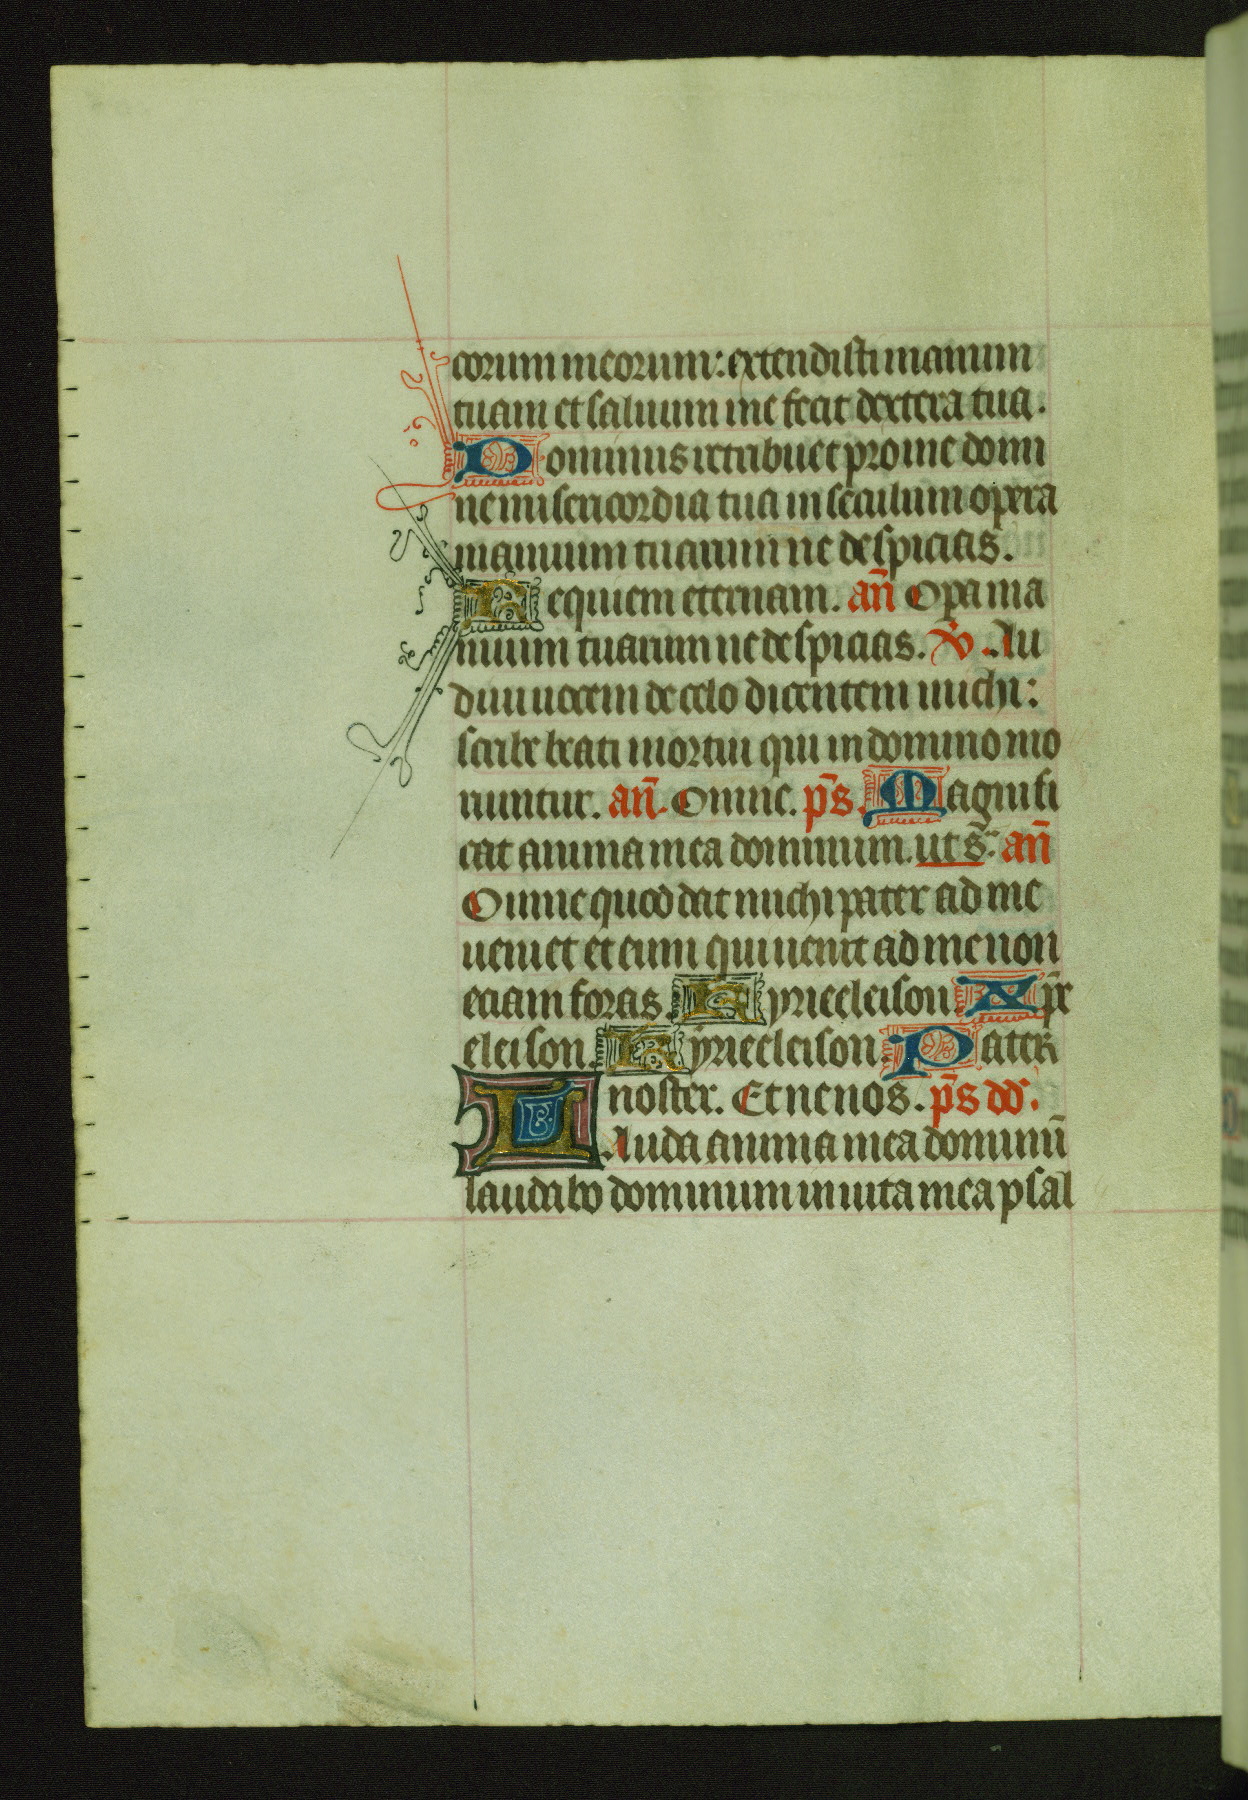 corum meorum: extendisti manum
tuam et saluum me fecit dextera tua.
Dominus retribuet pro me domi
ne misericordia tua in seculum opera
manuum tuarum ne despicias.
Requiem eternam. an̄ Opa ma
nuum tuarum ne despicias. V̄. Au
diui uocem de celo dicentem michi:
scribe beati mortui qui in domino mo
riuntur. an̄. Omne. ps̄. Magnifi
cat anima mea dominum. ut s̄. an̄
Omne quod dat michi pater ad me
ueniet et eum qui uenit ad me non
eiciam foras. Kyrieeleison. Xp̄e
eleison. Kyrieeleison. Pater
noster. Et ne nos. ps̄ dd̄.
LAuda anima mea dominū
laudabo dominum in uita mea psal